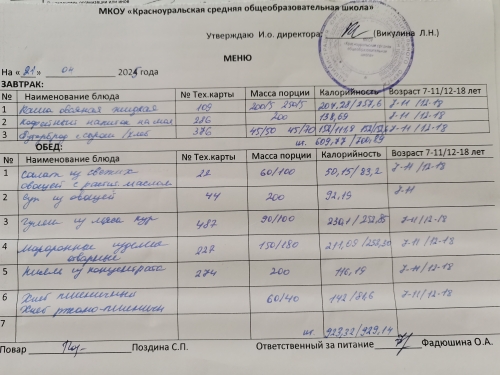 МКОУ «Красноуральская средняя общеобразовательная школа»
Утверждаю И.о. директора: (Викулина Л.Н.)
МЕНЮ
На «21» 04 2025 года
ЗАВТРАК:
№ Наименование блюда № Тех.карты Масса порции Калорийность Возраст 7-11/12-18 лет
1 Каша овсяная жидкая 109 200/5 250/5 7-11 /12-18
2 Кофейный напиток на мол 286 200 138,69 7-11 /12-18
3 Бутерброд с сыром /хлеб 376 45/50 45/70 7-11/12-18
ит. 609,77 / 700,89
ОБЕД:
№ Наименование блюда № Тех.карты Масса порции Калорийность Возраст 7-11/12-18 лет
1 Салат из свежих 22 60/100 50,15/83,2 7-11/12-18
овощей с раст. маслом
2 Суп из овощей 44 200 92,19 7-11
3 Гуляш из мяса кур 487 90/100 7-11/12-18
4 Макаронные изделия 227 150/180 7-11/12-18
отварные
5 Кисель из концентрата 274 200 116,19 7-11/12-18
6 Хлеб пшеничный 60/40 7-11/12-18
Хлеб ржано-пшеничн
7 ит. 929,32/929,14
Повар Поздина С.П. Ответственный за питание Фадюшина О.А.